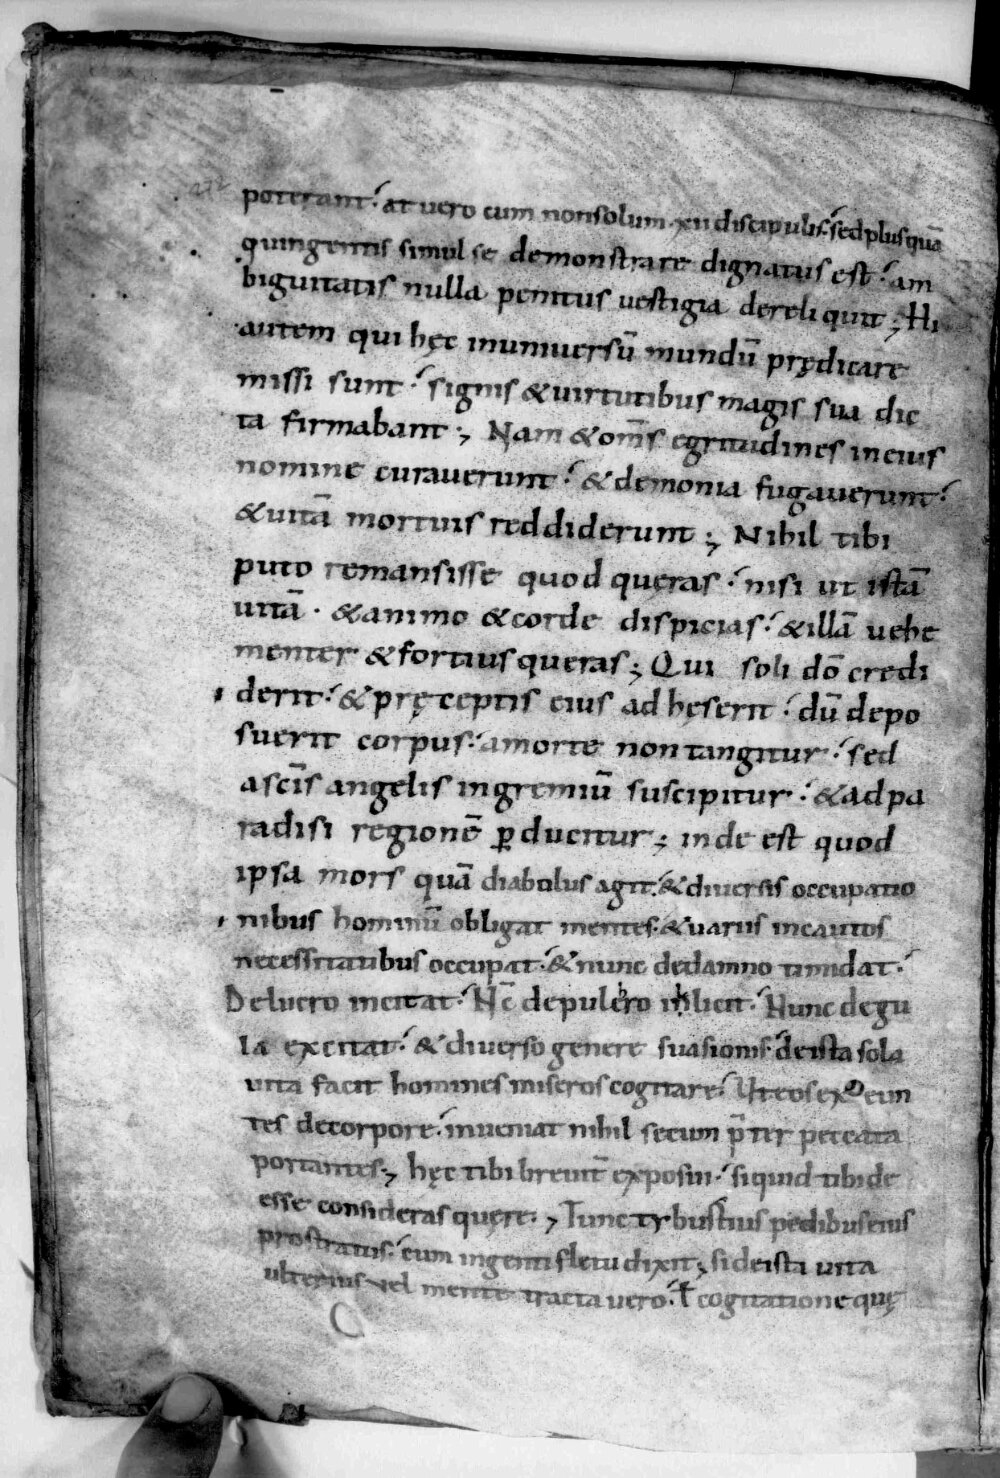 poterant. at vero cum nonsolum. xii discipulis. sed plusquā
quingentis simul se demonstrare dignatus est. am
biguitatis nulla penitus vestigia dereliquit; Hi
autem qui hęc inuniversū mundū prędicare
missi sunt. signis & uirtutibus magis sua dic
ta firmabant; Nam & om̄s egritudines in eius
nomine curaverunt. & demonia fugaverunt.
& uitā mortuis reddiderunt; Nihil tibi
puto remansisse quod queras. nisi ut istā
uitā. & animo & corde dispicias. & illā vehe
menter & fortius queras; Qui soli dō credi
derit. & pręceptis eius ad hęserit. dū depo
suerit corpus. amorte non tangitur. sed
ascīs angelis ingremiū suscipitur. & adpa
radisi regionē ꝑducitur; inde est quod
ipsa mors quā diabulus agit. & diversis occupatio
nibus hominū obligat mentes. & uariis incautos
necessitatibus occupat. & nunc dedamno timidat.
De lucro incitat. Nc̄ depulcro Nunc degu
la excitat. & diverso genere suasionis. deista sola
uita facit homines miseros cogitare. Ut eos exeun
tes decorpore. inveniat nihil secum p̄ter peccata
portantes; hęc tibi brevit̄ exposui. siquid tibi de
esse consideras quęre; Tunc tyburtius pedibus eius
prostratus. cum ingenti fletu dixit; si deista uita
ulterius vel mente tractavero. ł cogitatione quę